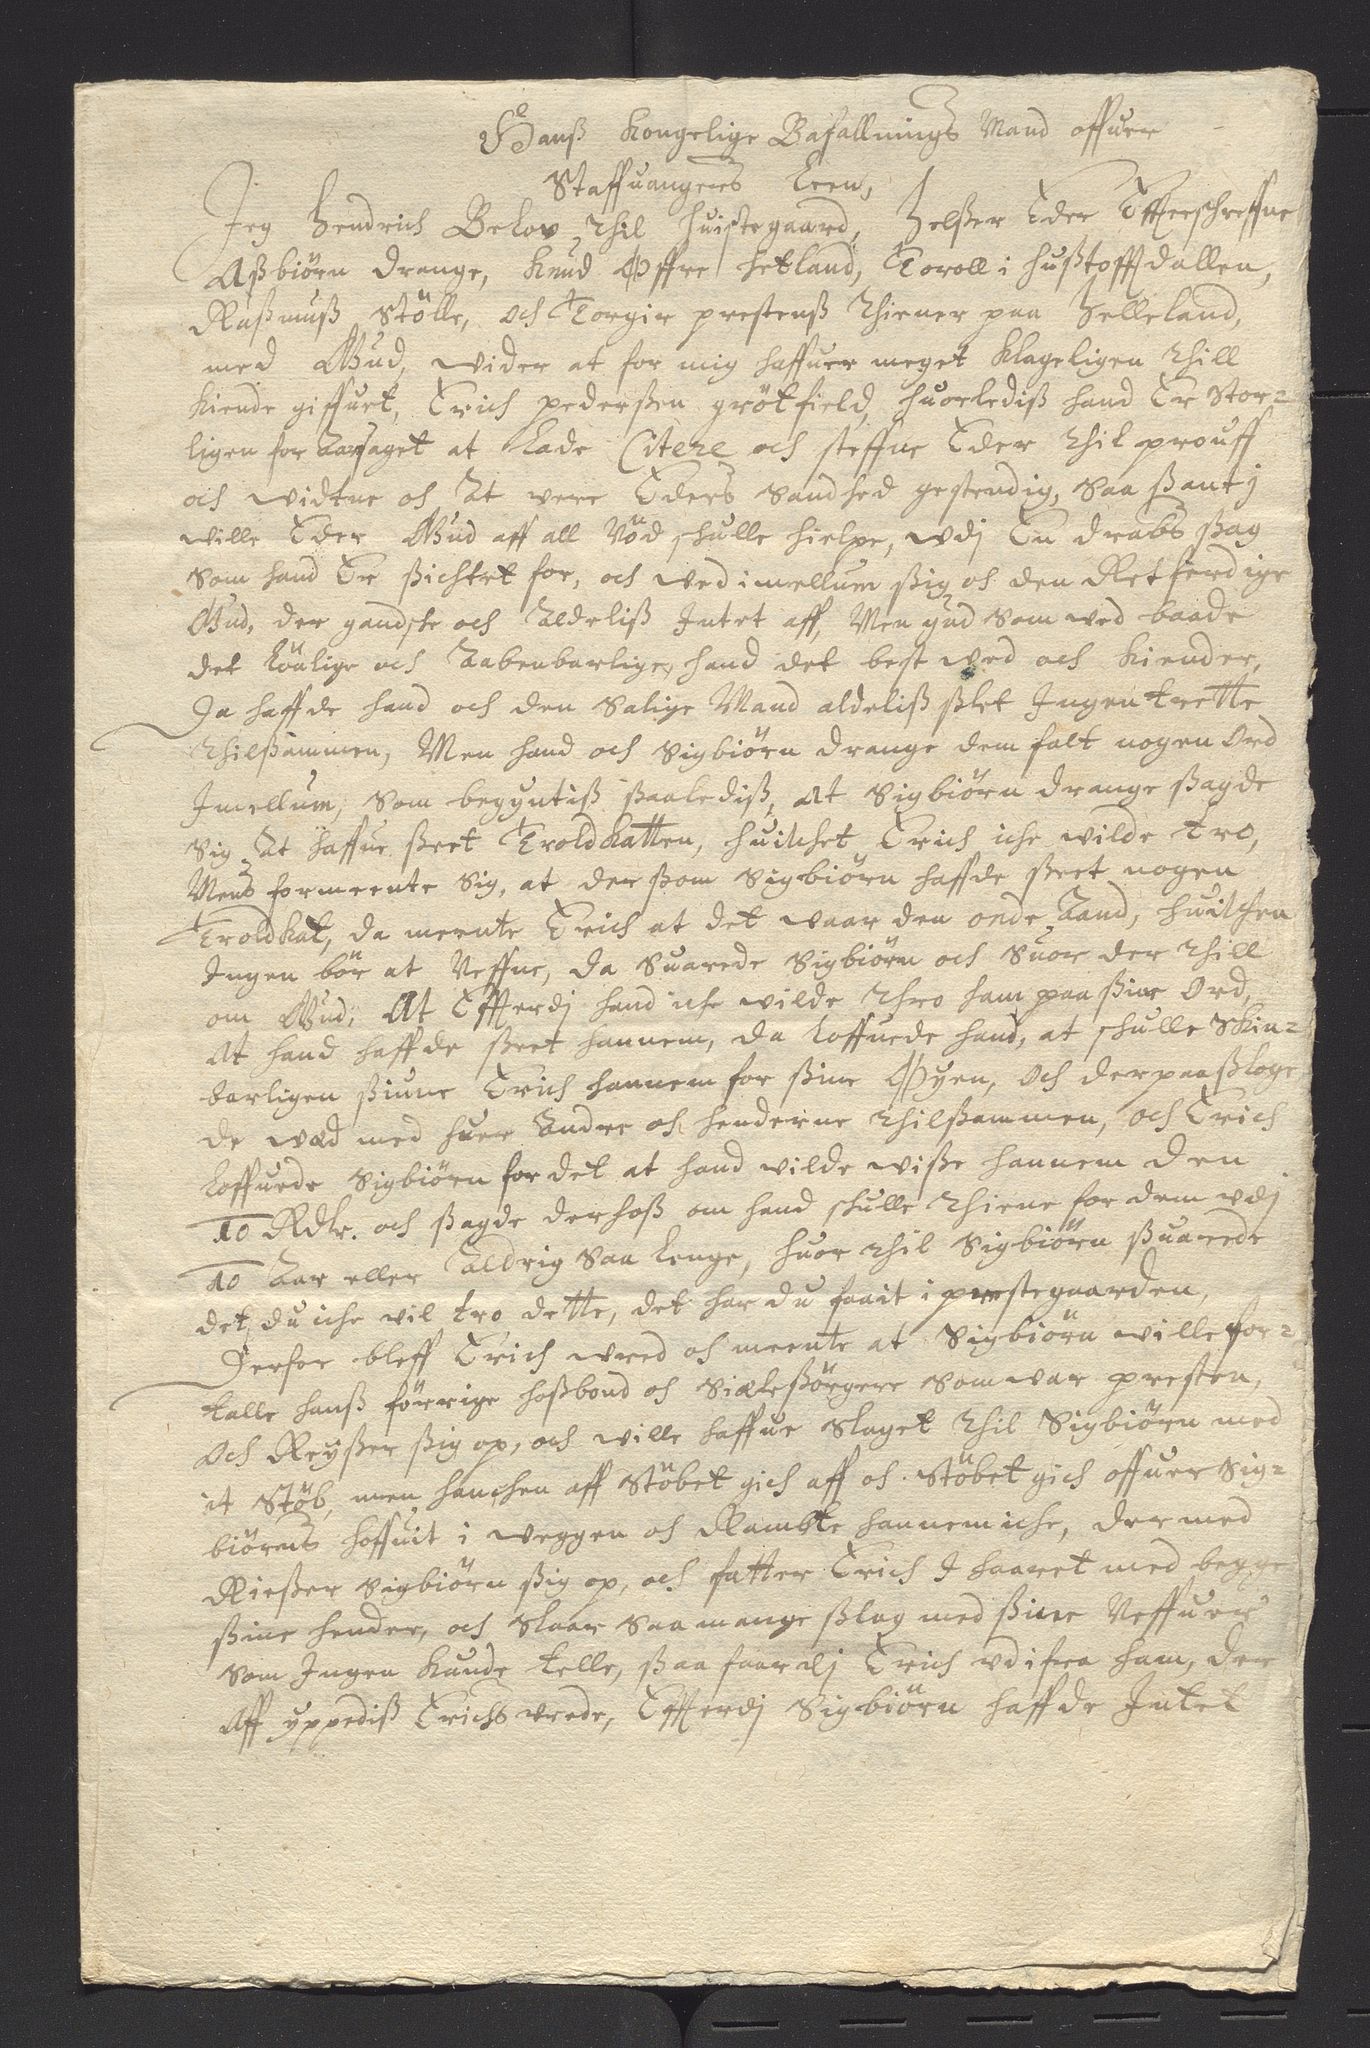 Hanß Kongelige Bafallnings Mand offuer
Staffuangers Leen,
Jeg Hendrich Belov, Thil Huistegaard, Helßer Eder Effterschreffne
Aßbiörn Drange, Knud Øffre Hetland, Toroll i Hußtofftdallen,
Raßmuß Stölle, och Torgir prestenß Thiener paa Helleland,
med Gud, wider at for mig haffuer meget Klageligen Thill
kiende giffuet, Erich pederßen grötfield, huorlediß hand Er Stor-
ligen for Aarsaget at Lade Citere och steffne Eder Thil prouff
och widtne oc At vere Eders Sandhed gestendig, Saa ßantj
wille Eder Gud aff all Nöd schulle hielpe, wdj En drabs ßag
Som hand Er ßichtet for, och wed imellum ßig oc den Retferdige
Gud, der gandsche och Aldeliß Intet aff, Men gud Som wed baade
det Lönlige och Aabenbarlige, hand det best wed och kiender,
Da haffde hand och den Salige Mand aldeliß ßlet Ingen trette
Thilßammen, Men hand och Sigbiörn Drange dem falt nogen Ord
Imellum, Som begyntiß ßaalediß, At Sigbiörn Drange ßagde
Sig At haffue ßeet Troldkatten, huilchet Erich iche wilde tro,
Mens formeente Sig, at derßom Sigbiörn haffde ßeet nogen
Troldkat, da meente Erich at det waar den onde Aand, huilchen
Ingen bör at Neffne, da Suarede Sigbiörn och Suor der Thill
om Gud, At Effterdj hand iche wilde Thro ham paa ßine Ord,
At hand haffde ßeet hannem, da Loffuede hand, at schulle Skin-
barligen ßiune Erich hannem for ßine Øyen, Och der paa ßloge
de wæd med huer Andre oc henderne Thilßammen, och Erich
Loffuede Sigbiörn for det at hand wilde wiße hannem den
10 Rdlr. och ßagde derhoß om hand schulle Thiene for dem wdj
10 Aar eller Aldrig Saa Lenge, huor Thil Sigbiörn ßuarede
det, du iche vil tro dette, det har du faait i prestegaarden,
Derfor bleff Erich wred oc meente at Sigbiörn wille for-
talle hanß förrige hoßbond oc Siæleßörgere Som war presten,
Och Reyßer ßig op, och wille haffue Slaget Thil Sigbiörn med
it Stöb, men hanchen aff Stöbet gich aff oc Stöbet gich offuer Sig-
biörens hoffuit i weggen oc Rambte hannem iche, der med
Rießer Sigbiörn ßig op, och fatter Erich I haaret med begge
ßine hender, och Slaar Saa mange ßlag med ßine Neffuer
Som Ingen Kunde telle, ßaa faar dj Erich vd ifra ham, der
Aff yppediß Erichs vrede, Effterdj Sigbiörn haffde Intet